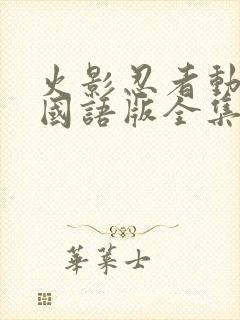 火影忍者動
國語版全集
華萊士